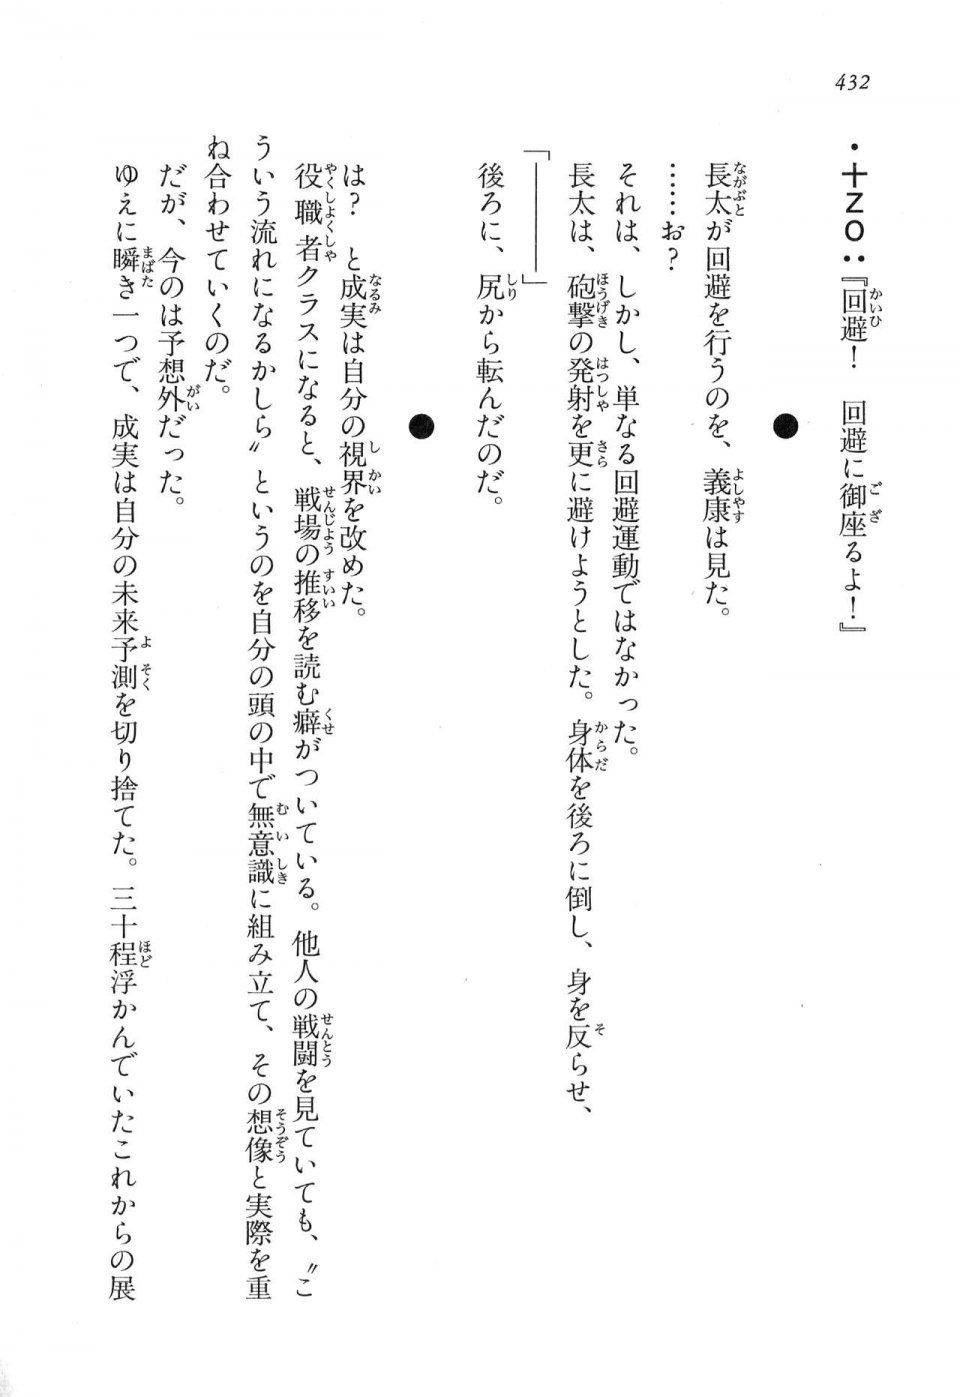 432
・十ZO：『回避！　回避に御座るよ！』
●
長太が回避を行うのを、義康は見た。
……お？
それは、しかし、単なる回避運動ではなかった。
長太は、砲撃の発射を更に避けようとした。身体を後ろに倒し、身を反らせ、
「――――」
後ろに、尻から転んだのだ。
●
は？　と成実は自分の視界を改めた。
役職者クラスになると、戦場の推移を読む癖がついている。他人の戦闘を見ていても、〝こ
ういう流れになるかしら〟というのを自分の頭の中で無意識に組み立て、その想像と実際を重
ね合わせていくのだ。
だが、今のは予想外だった。
ゆえに瞬き一つで、成実は自分の未来予測を切り捨てた。三十程浮かんでいたこれからの展